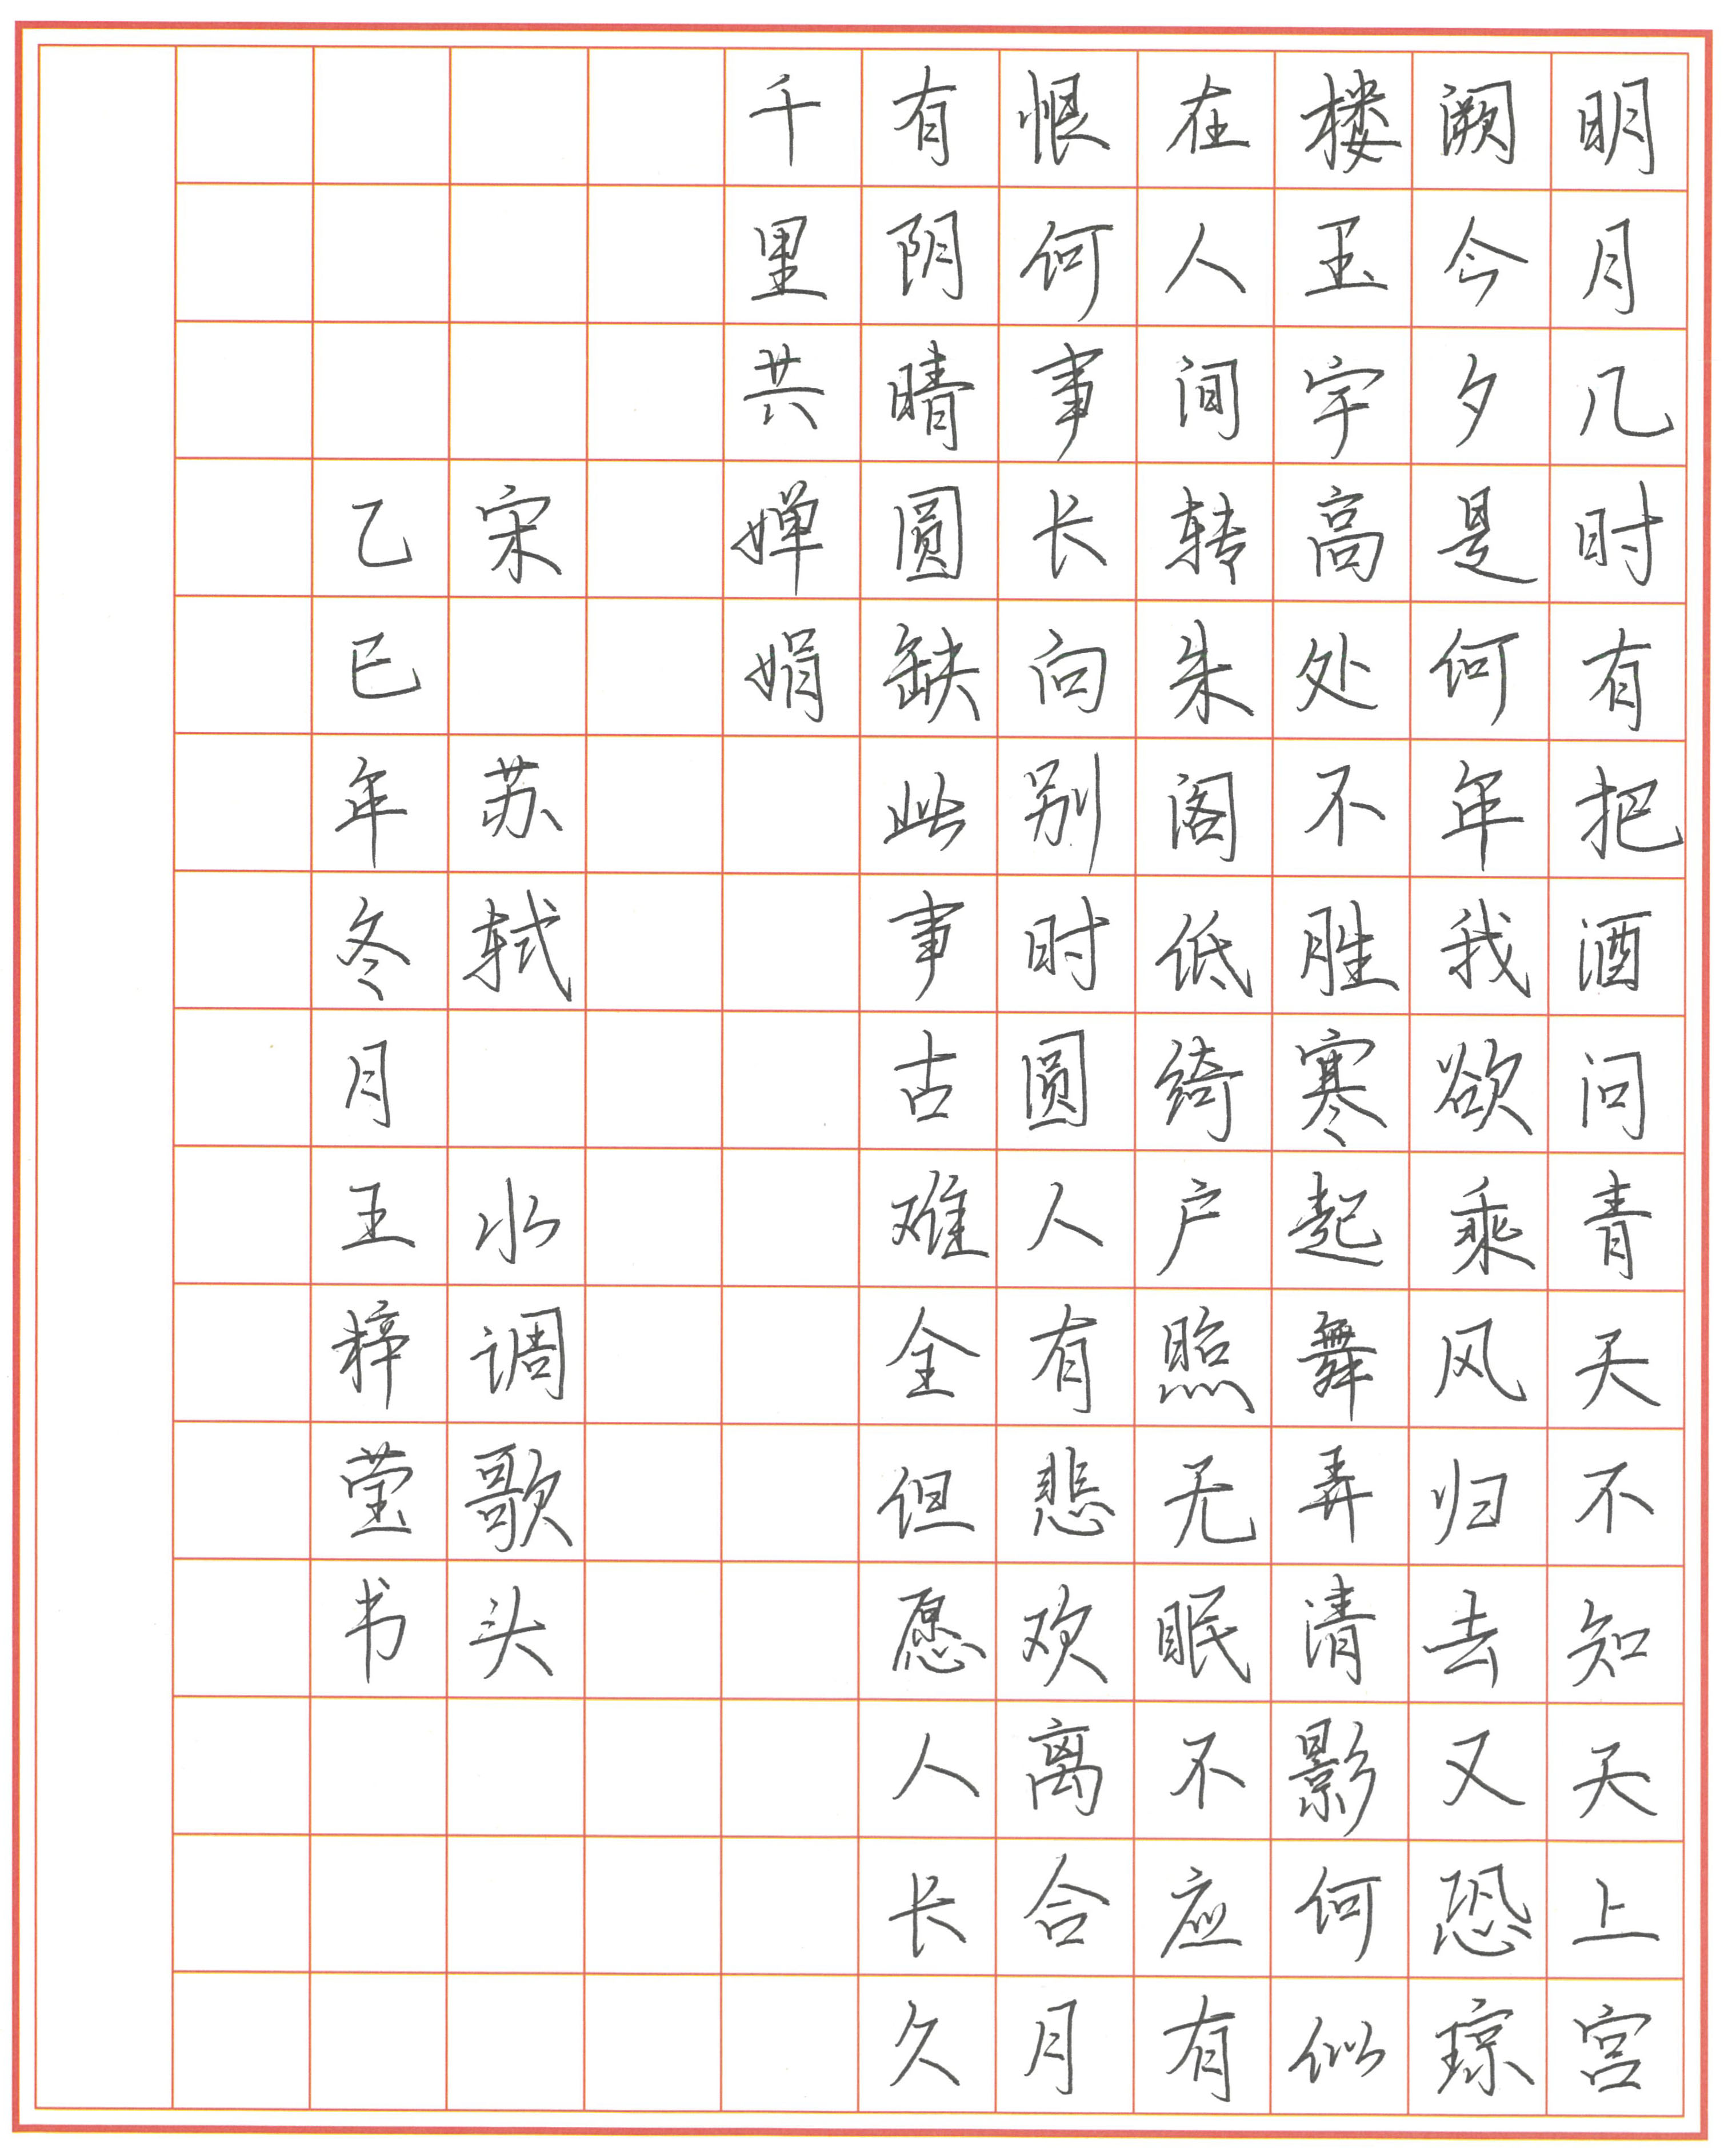 明月几时有把酒问青天不知天上宫
阙今夕是何年我欲乘风归去又恐琼
楼玉宇高处不胜寒起舞弄清影何似
在人间转朱阁低绮户照无眠不应有
恨何事长向别时圆人有悲欢离合月
有阴晴圆缺此事古难全但愿人长久
千里共婵娟
宋 苏轼 水调歌头
乙巳年冬月王梓莹书